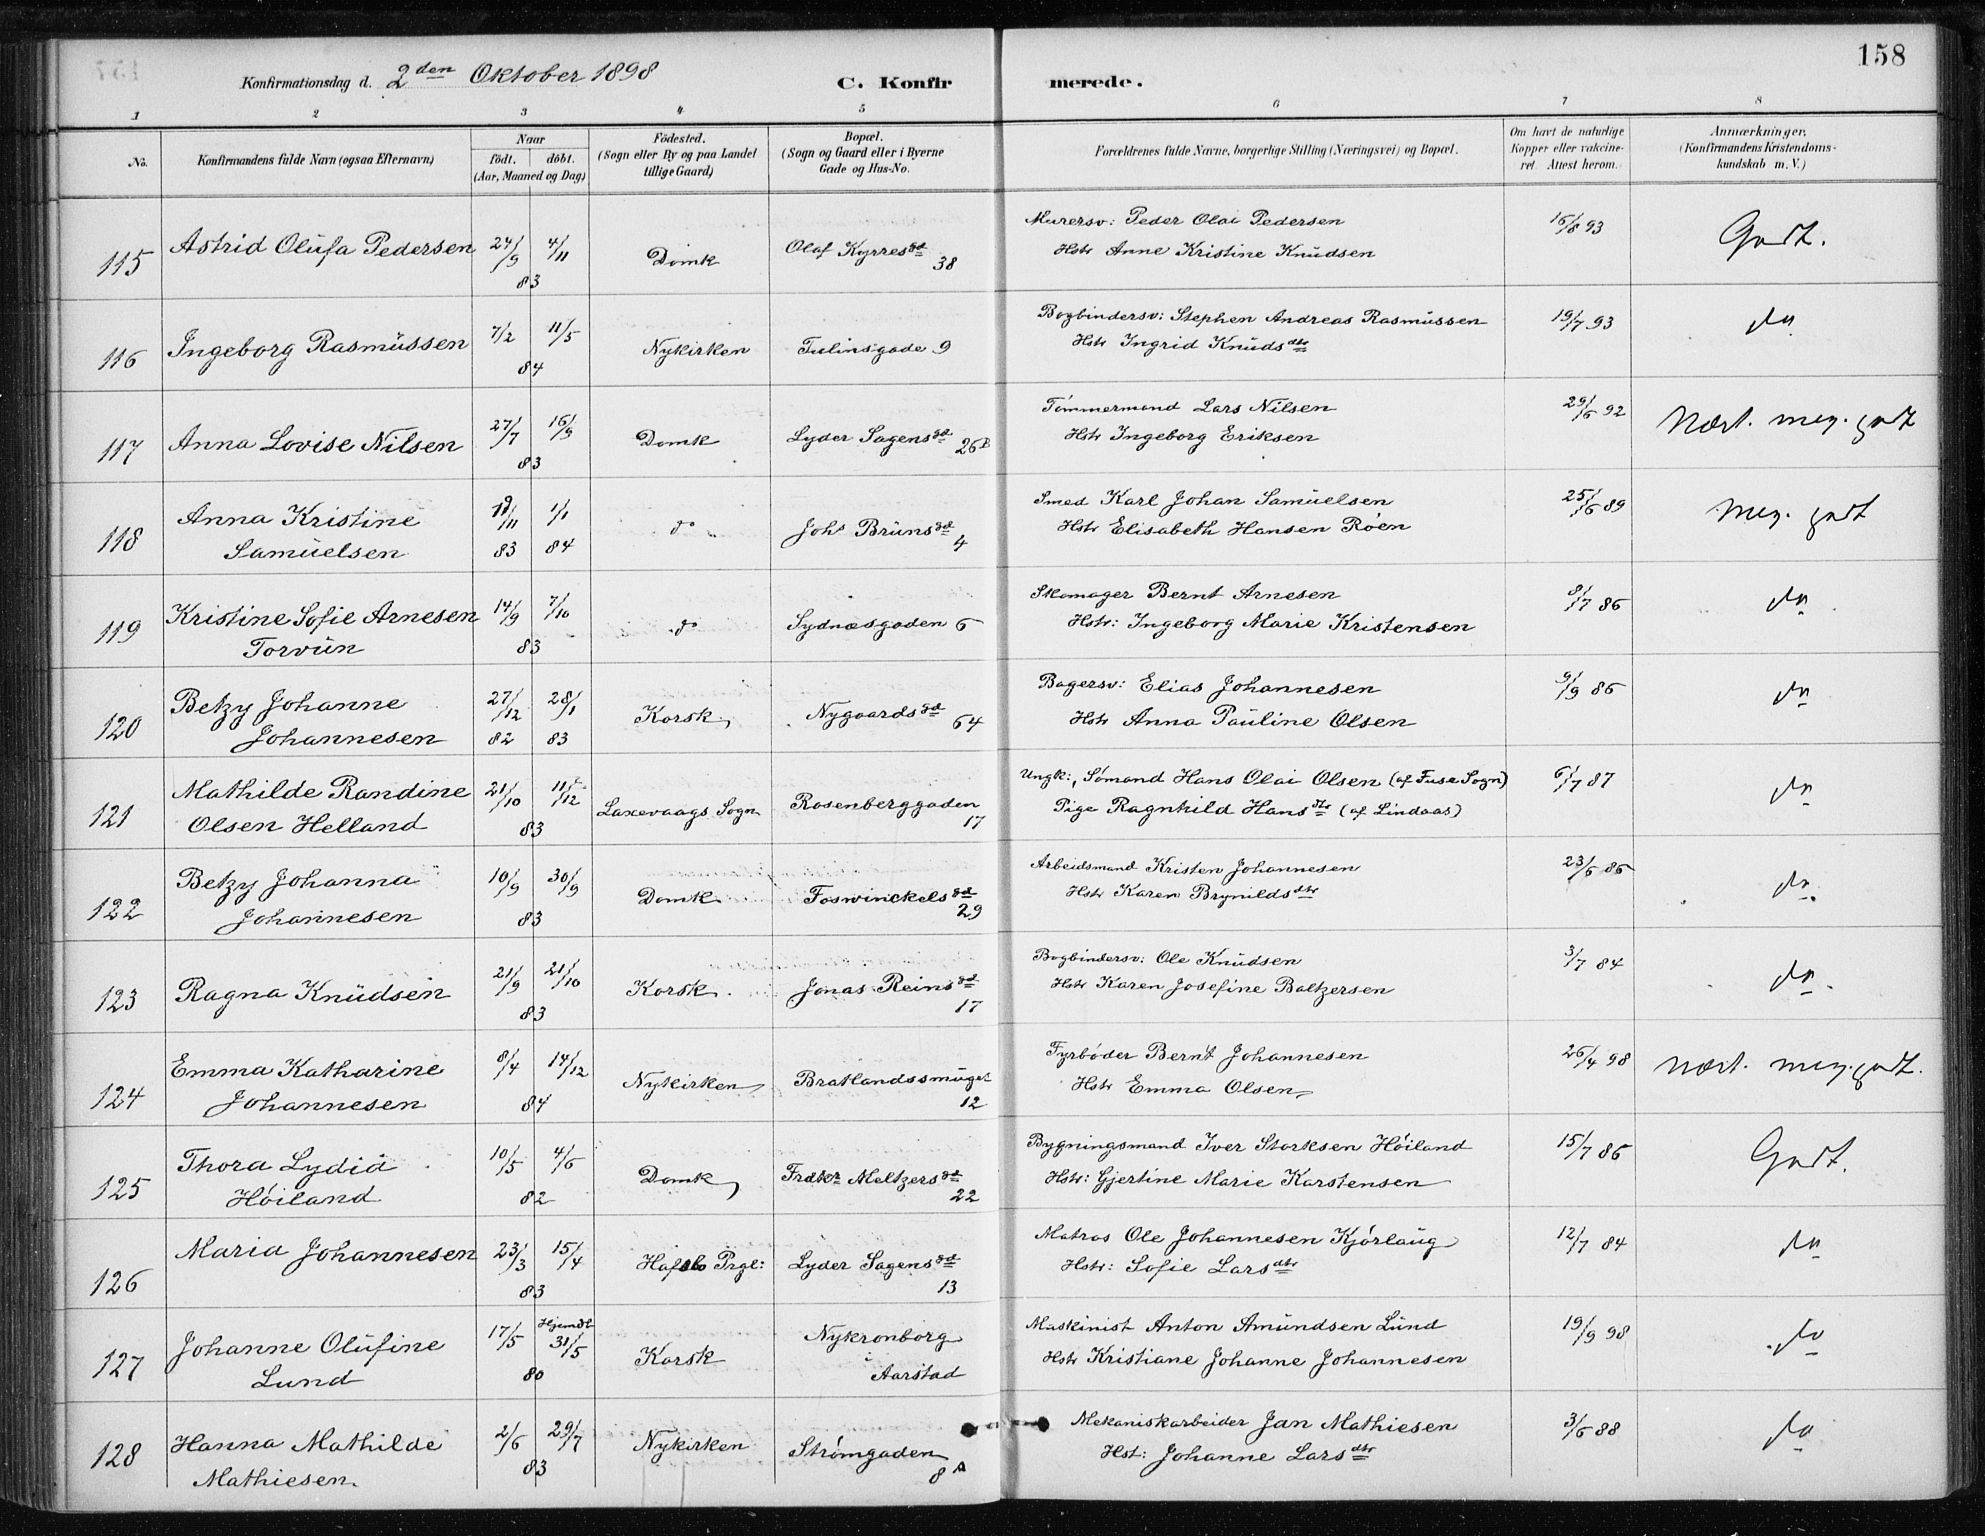 158
Konfirmationsdag d. 2den Oktober 1898 C. Konfirmerede.
1 2 3 4 5 6 7 8
No. Konfirmandens fulde Navn (ogsaa Efternavn) Naar födt. döbt. (Aar, Maaned og Dag) Födested. (Sogn eller By og paa Landet tillige Gaard) Bopæl. (Sogn og Gaard eller i Byerne Gade og Hus-No. Forældrenes fulde Navne, borgerlige Stilling (Næringsvei) og Bopæl. Om havt de naturlige Kopper eller vakcineret. Attest herom. Anmærkninger. (Konfirmandens Kristendomskundskab m. V.)
115 Astrid Olufa Pedersen 24/9 4/11 83 Domk Olaf Kyrresgd 38 Murersv: Peder Olai Pedersen 16/8 93 Godt.
Hstr Anne Kristine Knudsen
116 Ingeborg Rasmussen 7/2 11/5 84 Nykirken Tulinsgade 9 Bogbindersv: Stephen Andreas Rasmussen 19/7 93 do
Hstr Ingrid Knudsdtr
117 Anna Lovise Nilsen 27/7 16/9 83 Domk Lyder Sagensgd 26B Tömmermand Lars Nilsen 29/6 92 Næst. meg. godt
Hstr Ingeborg Eriksen
118 Anna Kristine 19/11 83 1/1 84 do Johs Brunsgd 4 Smed Karl Johan Samuelsen 25/6 89 Meg. godt
Samuelsen Hstr Elisabeth Hansen Röen
119 Kristine Sofie Arnesen 14/9 7/10 83 do Sydnæsgaden 6 Skomager Bernt Arnesen 8/7 86 do
Torvün Hstr: Ingeborg Marie Kristensen
120 Betzy Johanne 27/12 82 28/1 83 Korsk Nygaardsgd 64 Bagersv: Elias Johannesen 9/9 86 do
Johannesen Hstr Anna Pauline Olsen
121 Mathilde Randine 21/10 11/12 83 Laxevaags Sogn Rosenberggaden 17 Ungk:, Sömand Hans Olai Olsen (af Fuse Sogn) 6/7 87 do
Olsen Helland Pige Ragnhild Hansdtr (af Lindaas)
122 Betzy Johanna 10/9 30/9 83 Domk Foswinckelsgd 29 Arbeidsmand Kristen Johannesen 23/6 86 do.
Johannesen Hstr Karen Brynildsdtr
123 Ragna Knudsen 21/9 21/10 83 Korsk. Jonas Reinsgd 17 Bogbindersv: Ole Knudsen 3/7 84 do.
Hstr Karen Josefine Baltzersen
124 Emma Katharine 8/4 14/12 84 Nykirken Bratlandssmuget 12 Fyrböder Bernt Johannesen 26/4 98 Næst. meg. godt.
Johannesen Hstr Emma Olsen
125 Thora Lydia 10/5 4/6 82 Domk Fredkr Meltzersgd 22 Bygningsmand Iver Storksen Höiland 15/7 86 Godt.
Höiland Hstr: Gjertine Marie Karstensen
126 Maria Johannesen 23/3 15/4 83 Hafslo Prgl: Lyder Sagensgd 13 Matros Ole Johannesen Kjörlaug 12/7 84 do
Hstr: Sofie Larsdtr
127 Johanne Olufine 17/5 Hjemdt 31/5 80 Korsk Nykronborg i Aarstad Maskinist Anton Amundsen Lund 19/9 98 do
Lund Hstr Kristiane Johanne Johannesen
128 Hanna Mathilde 2/6 29/7 83 Nykirken Strömgaden 8A Mekaniskarbeider Jan Mathiesen 3/6 88 do
Mathiesen. Hst: Johanne Larsdtr